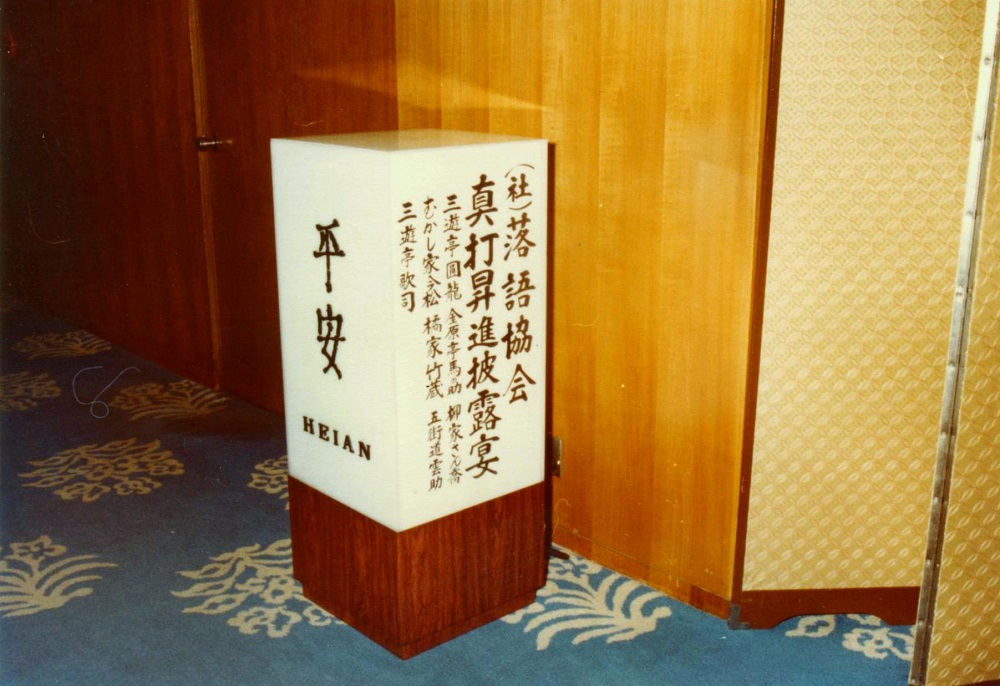 平安
HEIAN
(社)落語協会
真打昇進披露宴
三遊亭圓龍 金原亭馬の助 柳家さん喬
むかし家今松 橘家竹蔵 五街道雲助
三遊亭歌司